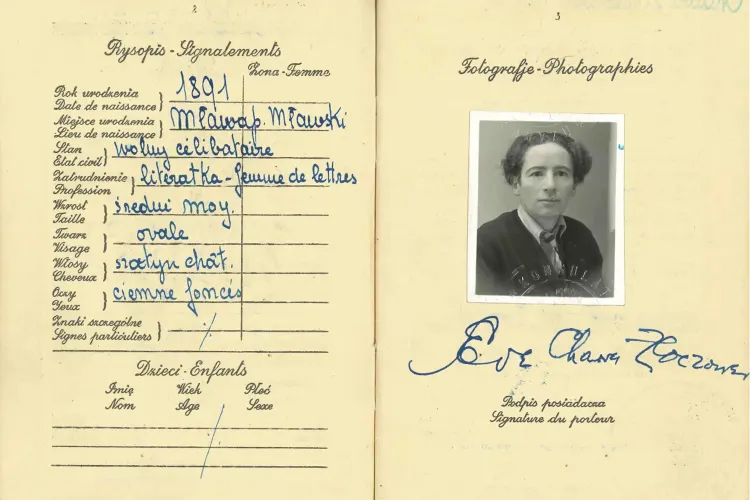 2
Rysopis - Signalements
Żona - Femme
Rok urodzenia
Date de naissance
1891
Miejsce urodzenia
Lieu de naissance
Mława p. Mławski
Stan
Etat civil
wolny célibataire
Zatrudnienie
Profession
literatka - femme de lettres
Wzrost
Taille
średni moy.
Twarz
Visage
ovale
Włosy
Cheveux
szatyn chât.
Oczy
Yeux
ciemne foncés
Znaki szczególne
Signes particuliers
Dzieci - Enfants
Imię Wiek Płeć
Nom Age Sexe
3
Fotografje - Photographies
Eve Chawa Złoczower
Podpis posiadacza
Signature du porteur